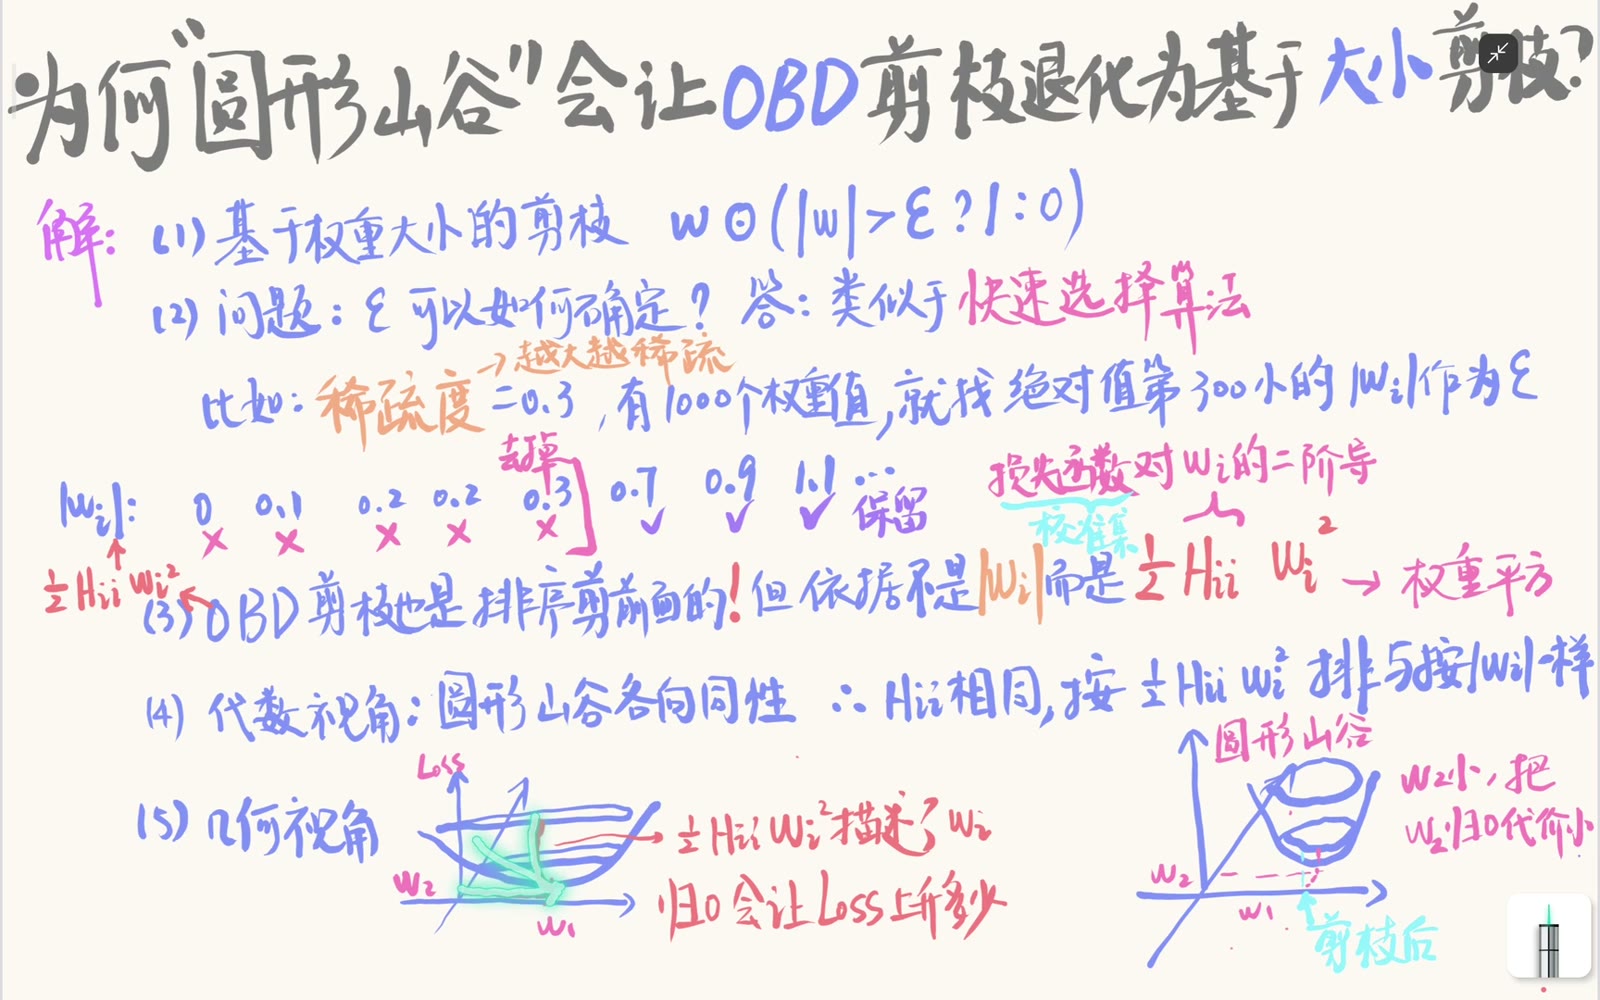 为何“圆形山谷”会让OBD剪枝退化为基于大小剪枝?
解: (1) 基于权重大小的剪枝 w⊙(|w|>ε?1:0)
(2) 问题: ε可以如何确定? 答: 类似于快速选择算法
→越大越稀疏
比如: 稀疏度=0.3, 有1000个权重值, 就找绝对值第300小的|wi|作为ε
去掉
|wi|: 0 0.1 0.2 0.2 0.3 0.7 0.9 1.1 ...
× × × × × ✓ ✓ ✓ 保留
损失函数对wi的二阶导
校准集
½Hii wi²
(3) OBD剪枝也是排序剪前面的! 但依据不是|wi|而是½Hii wi² → 权重平方
(4) 代数视角: 圆形山谷各向同性 ∴Hii相同, 按½Hii wi²排与按|wi|一样
(5) 几何视角
Loss
w2
w1
½Hii wi²描述了wi
归0会让Loss上升多少
圆形山谷
w2
w1
剪枝后
w2小, 把
w2归0代价小